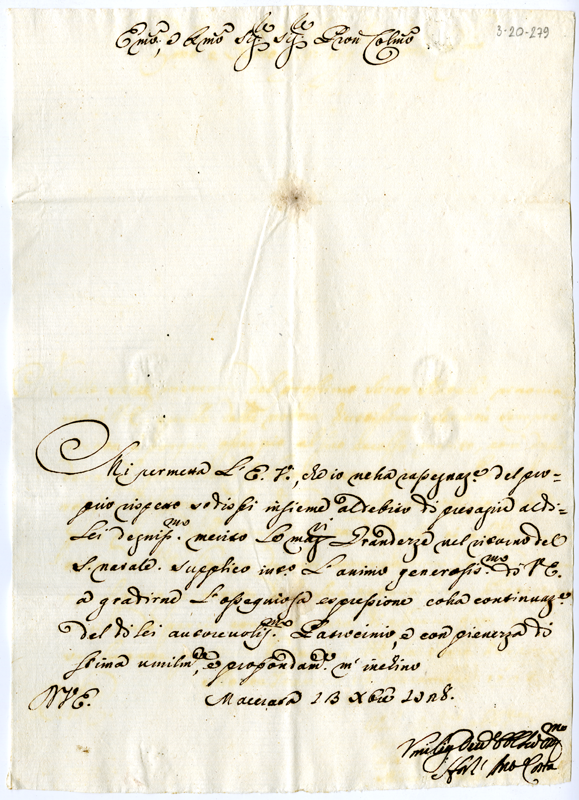 3-20-279
Emo, e Rmo Sig.re Sig.re Pron Colmo
Mi permetta L'E. V., ch'io nella rassegnaz.e del pro-
prio rispetto sodisfi insieme al debito di presagire al di-
Lei degniss.mo merito Le magg.ri Grandezze nel ritorno del
S. natale. Supplico L'animo generosiss.mo di V.E.
a gradirne L'ossequiosa espressione colla continuaz.e
del di lei autorevoliss.mo Patrocinio, e con pienezza di
stima umilm.te, e profondam.te m'inchino
D V E. Macerata 13 Xbre
Umiliss Dev Obl
Costa